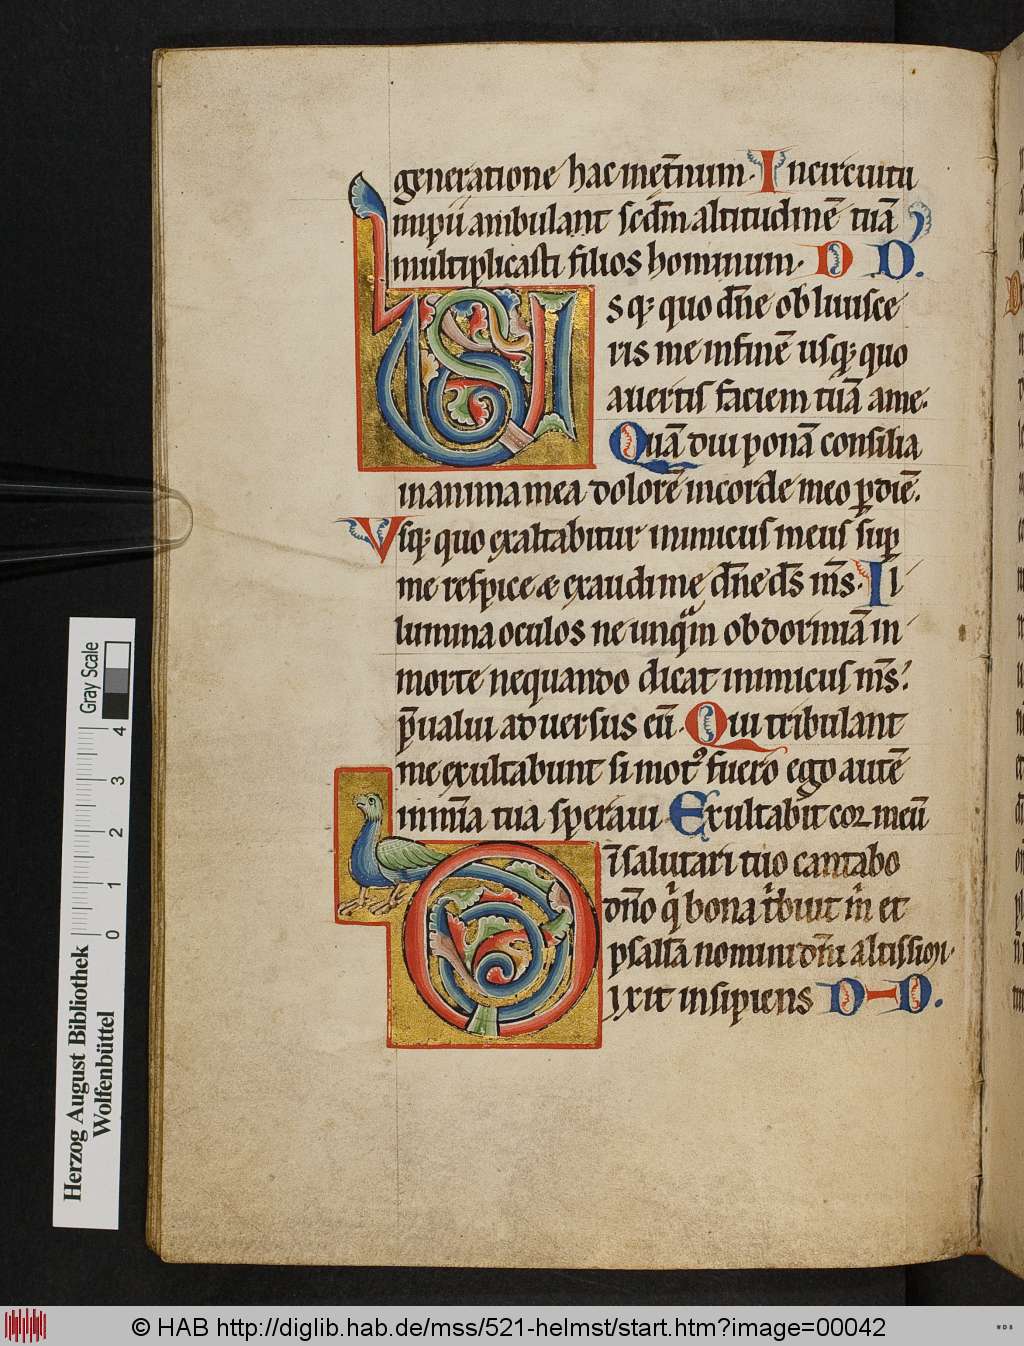 generatione hac inet̄num. In circuitu
impii ambulant scd̄m altitudinē tuā
multiplicasti filios hominum. D D.
Usq; quo dn̄e obliuisce
ris me infinē usq; quo
auertis faciem tuā ame.
Quā diu ponā consilia
inanima mea dolorē incorde meo p̱ diē.
Vsq; quo exaltabitur inimicus meus sup̱
me respice & exaudi me dn̄e ds̄ ms̄. Il
lumina oculos ne unqͣm obdormiā in
morte nequando dicat inimicus ms̄.
p̄ualui aduersus eū. Qui tribulant
me exultabunt si motꝰ fuero ego autē
in mīa tua speraui Exultabit cor meū
ī salutari tuo cantabo
dn̄o qͥ bona tͥbuit mͥ et
psallā nomini dn̄i altissimi.
Dixit insipiens D D.
Herzog August Bibliothek
Wolfenbüttel
0 1 2 3 4
Gray Scale
© HAB http://diglib.hab.de/mss/521-helmst/start.htm?image=00042